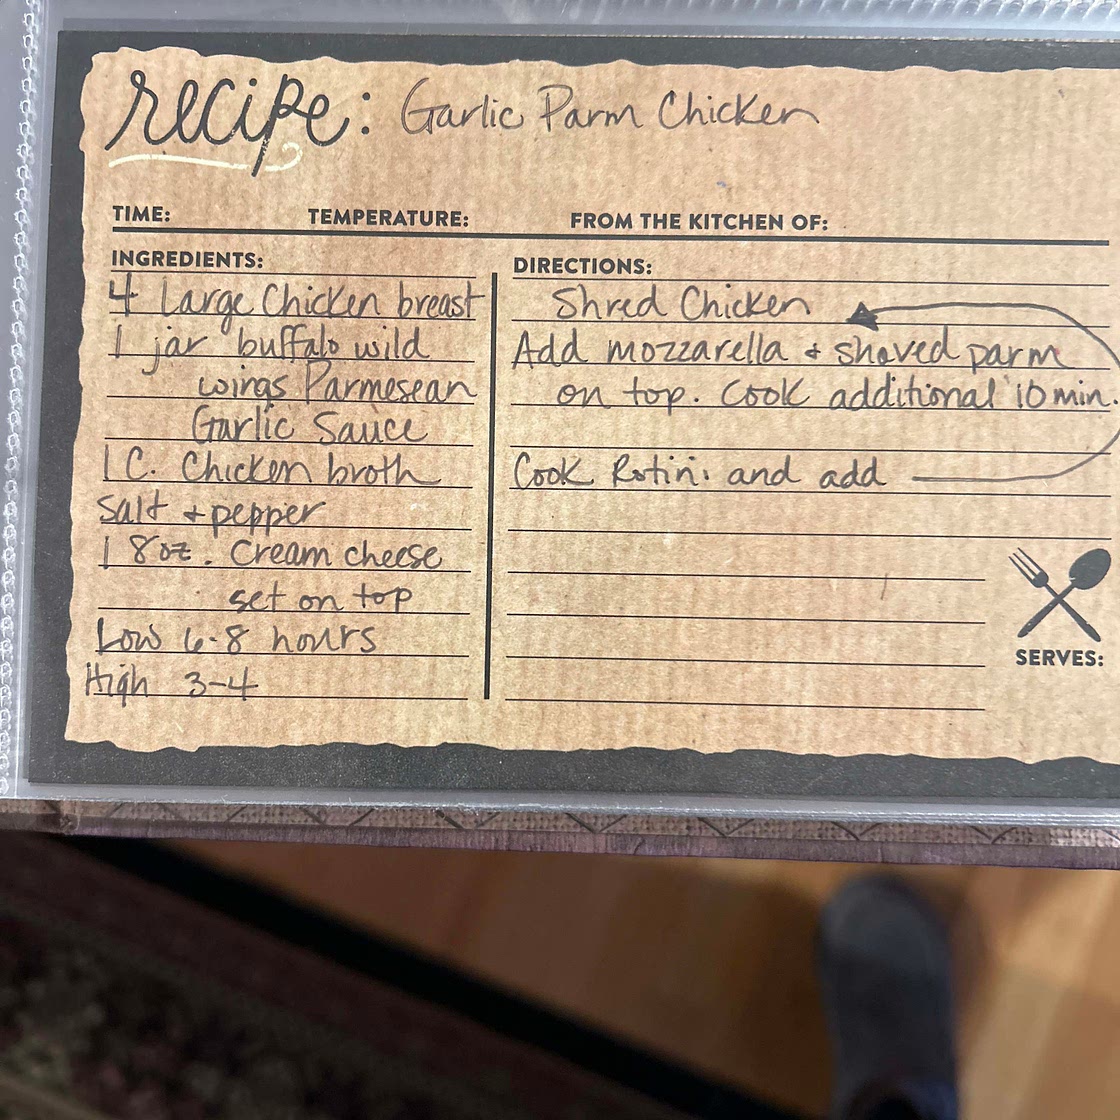 recipe: Garlic Parm Chicken
TIME: TEMPERATURE: FROM THE KITCHEN OF:
INGREDIENTS:
4 Large Chicken breast
1 jar buffalo wild
wings Parmesean
Garlic Sauce
1 C. Chicken broth
salt + pepper
1 8oz. Cream cheese
set on top
Low 6-8 hours
High 3-4
DIRECTIONS:
Shred Chicken
Add mozzarella + shaved parm
on top. Cook additional 10 min.
Cook Rotini and add
SERVES: